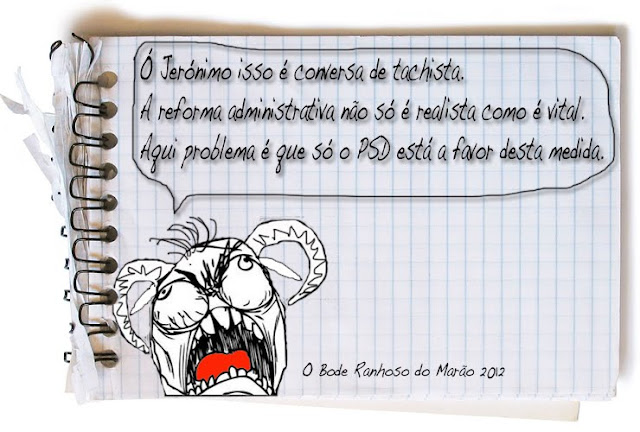 Ó Jerónimo isso é conversa de tachista.
A reforma administrativa não só é realista como é vital.
Aqui problema é que só o PSD está a favor desta medida.
O Bode Ranhoso do Marão 2012